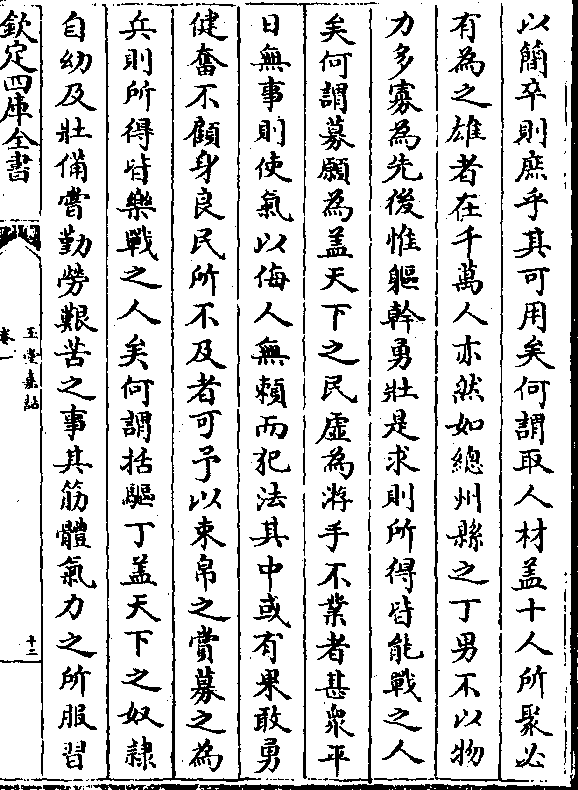 以簡卒則庶乎其可用矣何謂取人材盖十人所聚必
有為之雄者在千萬人亦然如總州縣之丁男不以物
力多寡為先後惟軀幹勇壯是求則所得皆能戰之人
矣何謂募願為盖天下之民虚為游手不業者甚衆平
日無事則使氣以侮人無頼而犯法其中或有果敢勇
健奮不顧身良民所不及者可予以束帛之賞募之為
兵則所得皆樂戰之人矣何謂括驅丁盖天下之奴隸
自幼及壯備嘗勤勞艱苦之事其筋體氣力之所服習
欽定四庫全書
玉堂嘉話
卷一
十二